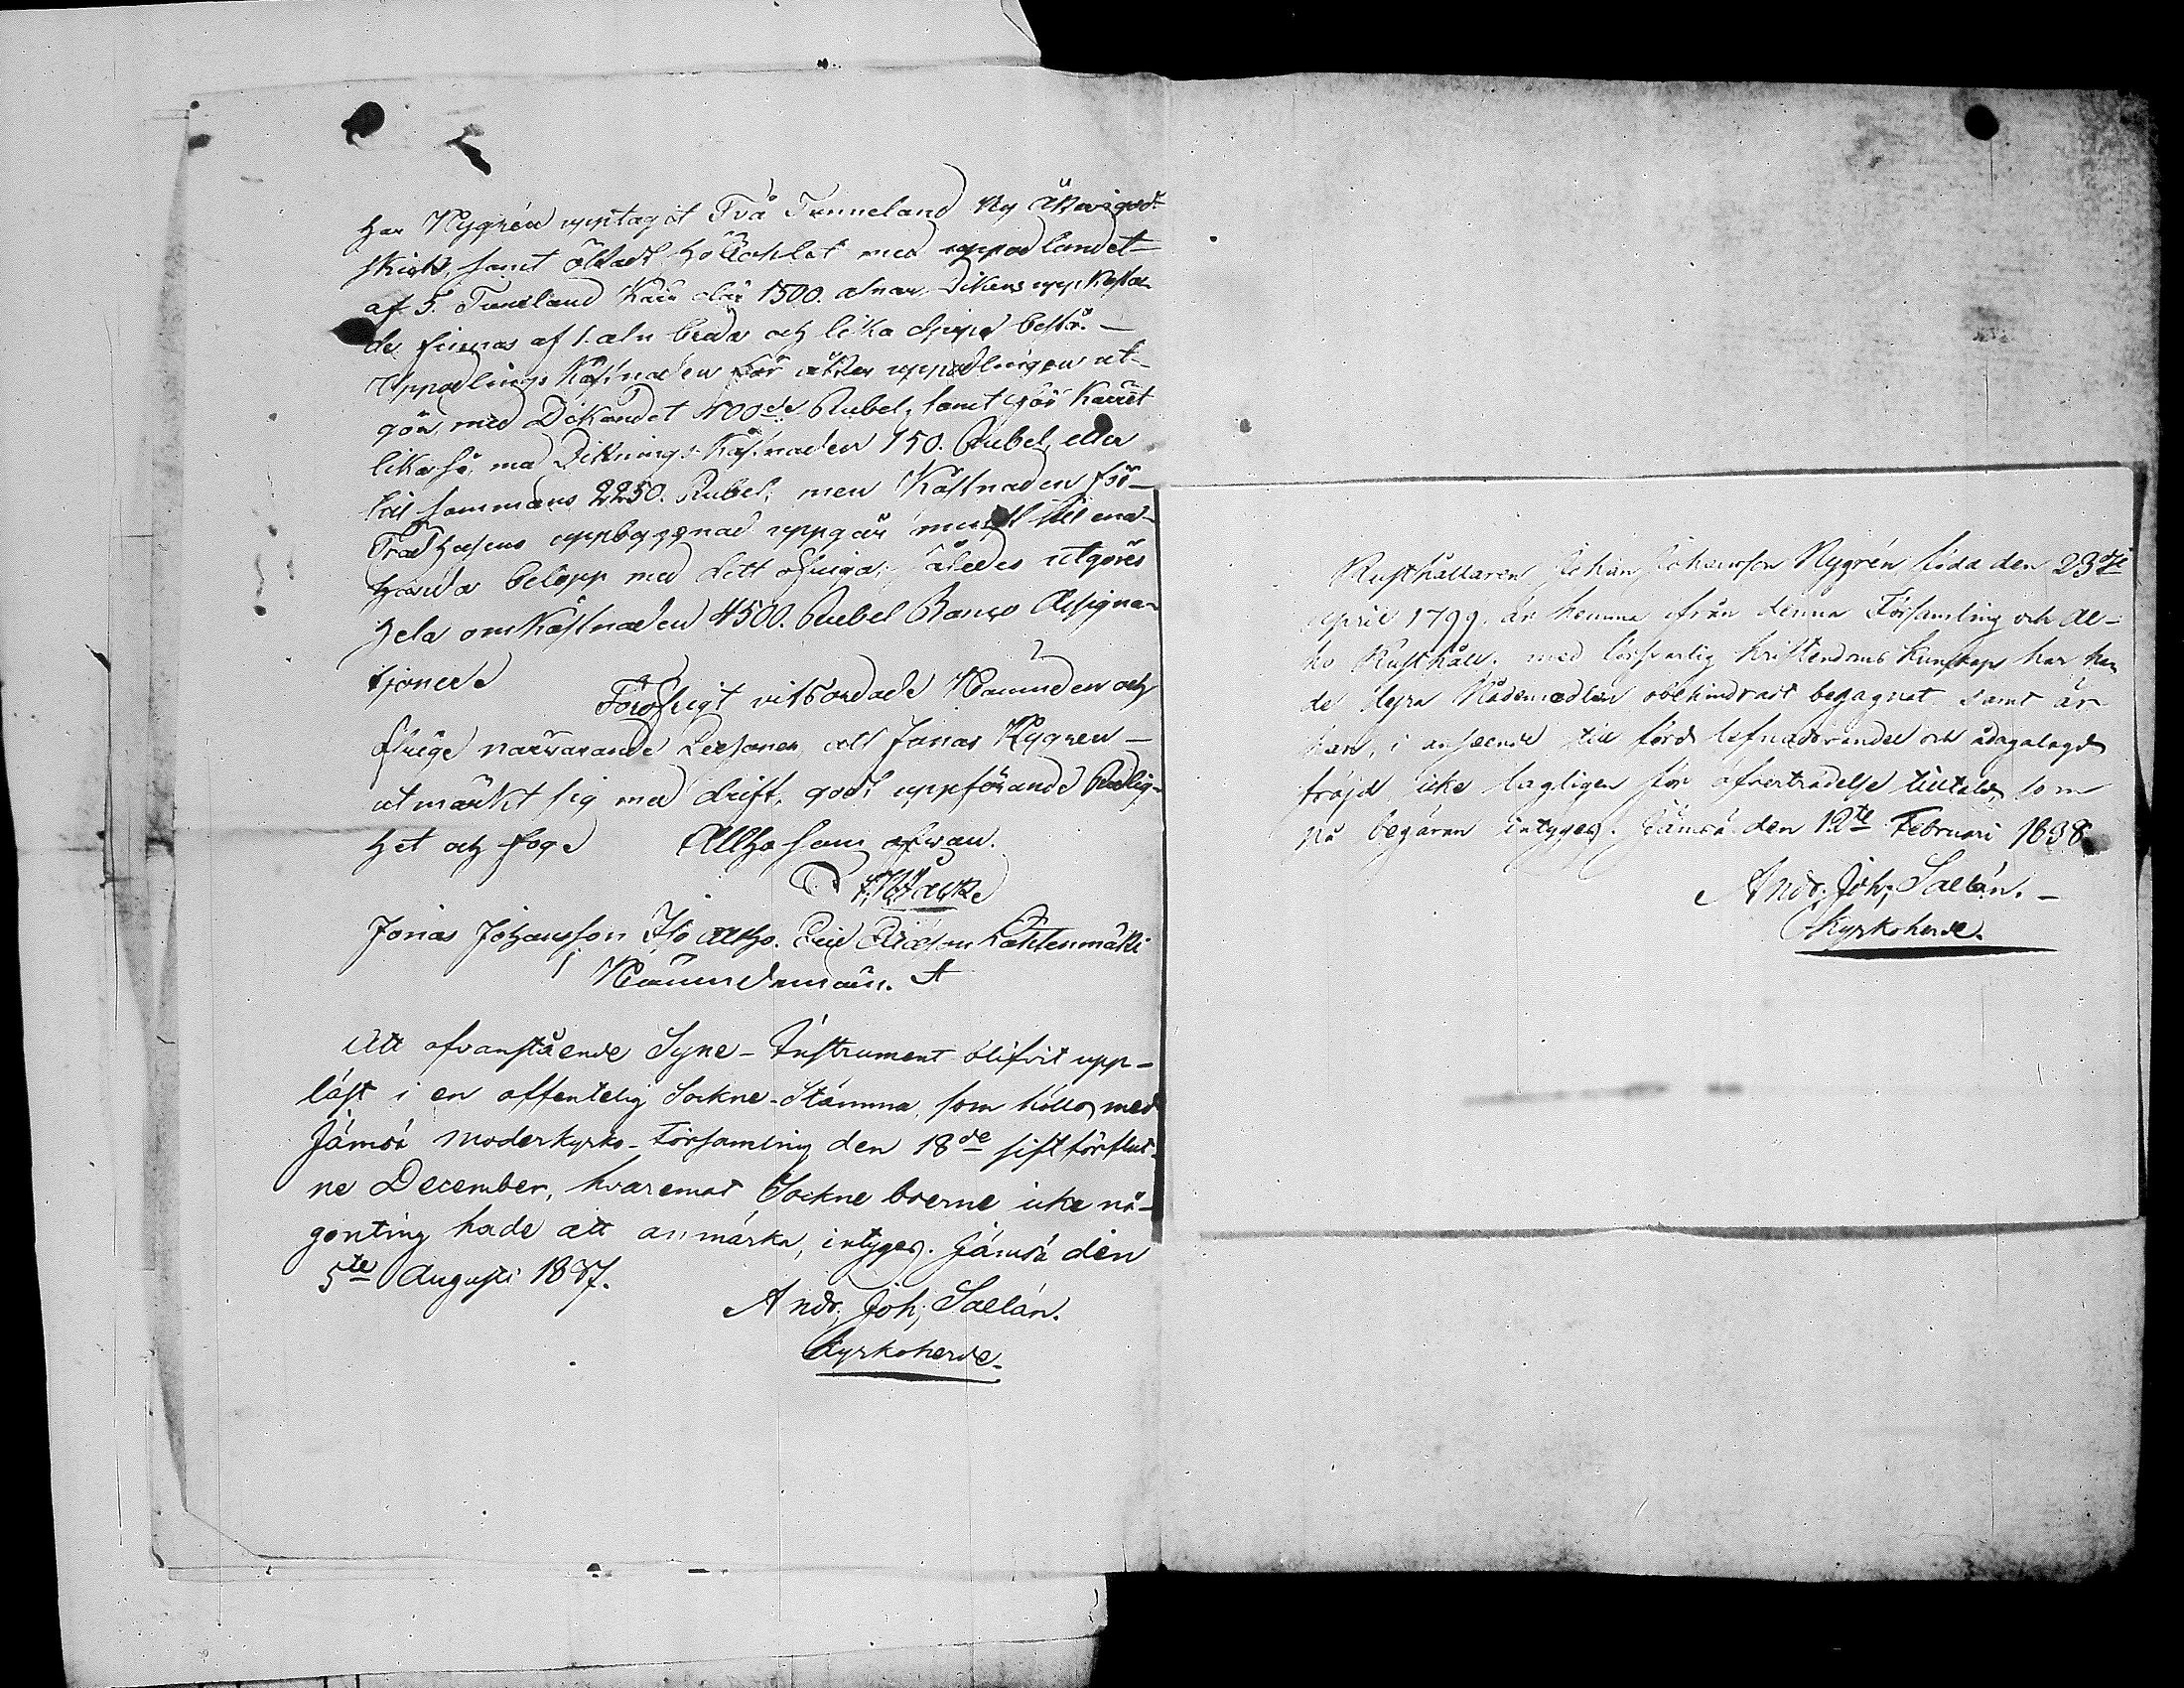 har Nygrén upptagit Två Tunneland Ny Åker i godt
skick, samt med upodlandet
af 5. Tunneland Kärr där 1500. alnar Dikens uppkasta-
de finnas af 1. aln breda och lika djupa
Uppodlings Kåstnaden för åker uppodlingen ut-
gör, med Dikandet Rubel, samt för Kärret
likaså med Diknings Kåstnaden 750. Rubel eller
till sammans 2250. Rubel; men Kåstnaden för
uppbyggnad uppgår till ena-
handa belopp med ditt öfriga, således utgöres
hela omkåstnaden 4500. Rubel Banco Assigna-
tioner
Föröfrigt vitsordade Nämnden och
öfrige närvarande Personer att Jonas Nygren
utmärkt sig med drift, godt uppförande Redlig-
het och foge Allt som ofvan.
Jonas Johansson Iso Alho. Eric Ericsson Lahtenmäki
Nämndemän.
Att ofvanstående Syne-Instrument blifvit upp-
läst i en offentelig Sockne-Stämma, som hölls med
Jämsä Moderkyrko-Församling den 18de sistförflut-
ne December, hvaremot Sockneboerne icke nå-
gonting hade att anmärka, intygas. Jämsä den
5te Augusti 1837.
Andr. Joh; Sallén.
Kyrkoherde.
Rusthållaren Johan Johansson Nygrén, föda den 23dje
April 1799, är hemma ifrån denna Församling och Al-
ho Rusthåll. med försvarlig Kristendoms Kunskap har han
de dyra Nådemedlen obehindradt begagnat. Samt är
han, i anseende till förd lefnadsvandel och ådagalagd
fräjd icke lagligen för öfverträdelse tilltald, som
på begäran intygas. Jämsä den 12te Februari 1838.
Andr. Joh; Sallén.
Kyrkoherde.